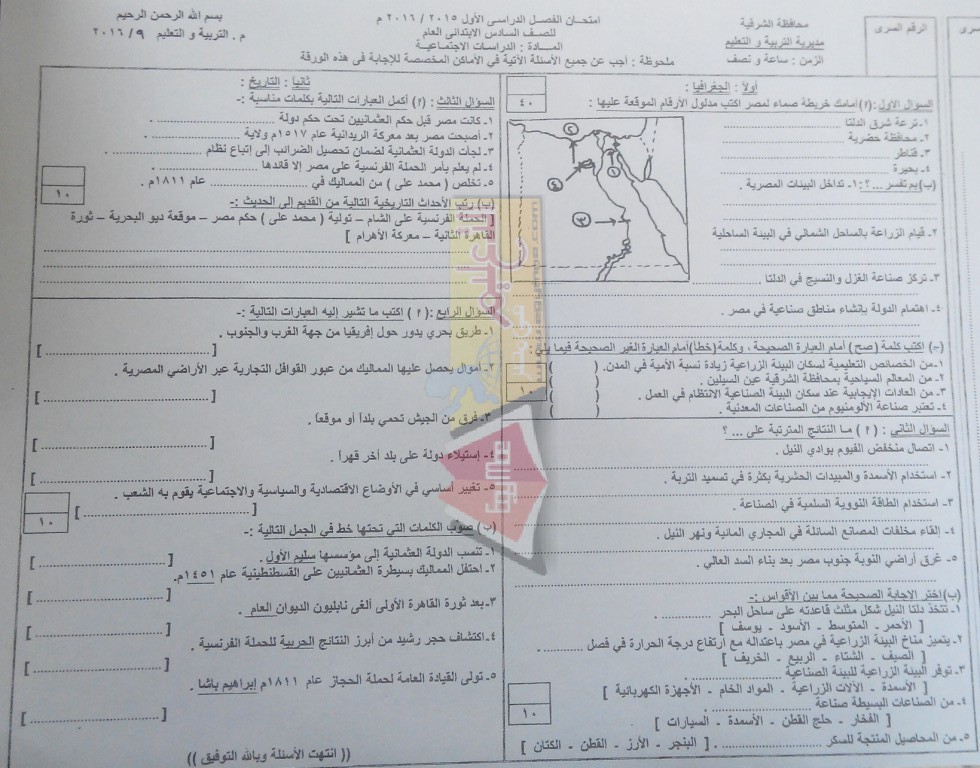 بسم الله الرحمن الرحيم
م . التربية و التعليم ٩/ ٢٠١٦
امتحان الفصل الدراسى الأول ٢٠١٥ / ٢٠١٦ م
للصف السادس الابتدائى العام
المــادة : الدراسات الاجتماعية
ملحوظة : أجب عن جميع الأسئلة الآتية في الأماكن المخصصة للإجابة فى هذه الورقة
محافظة الشرقية
مديرية التربية و التعليم
الزمن : ساعة و نصف
الرقم السرى
أولاً : الجغرافيا :
٤٠
السؤال الأول :(٢) أمامك خريطة صماء لمصر اكتب مدلول الأرقام الموقعة عليها :
١- ترعة شرق الدلتا
٢- محافظة حضرية
٣- قناطر
٤- بحيرة
١
٢
٣
٤
(ب) بم تفسر ...؟ : ١- تداخل البيئات المصرية .
٢- قيام الزراعة بالساحل الشمالي في البيئة الساحلية
٣- تركز صناعة الغزل والنسيج في الدلتا
٤- اهتمام الدولة بإنشاء مناطق صناعية في مصر .
(جـ) اكتب كلمة (صح) أمام العبارة الصحيحة ، وكلمة (خطأ) أمام العبارة الغير الصحيحة فيما يلي :
١- من الخصائص التعليمية لسكان البيئة الزراعية زيادة نسبة الأمية في المدن. ( )
٢- من المعالم السياحية بمحافظة الشرقية عين السيلين . ( )
٣- من العادات الإيجابية عند سكان البيئة الصناعية الانتظام في العمل . ( )
٤- تعتبر صناعة الألومنيوم من الصناعات المعدنية . ( )
١٠
السؤال الثاني : (٢) ما النتائج المترتبة على ... ؟
١- اتصال منخفض الفيوم بوادي النيل .
٢- استخدام الأسمدة والمبيدات الحشرية بكثرة في تسميد التربة .
٣- استخدام الطاقة النووية السلمية في الصناعة .
٤- إلقاء مخلفات المصانع السائلة في المجاري المائية ونهر النيل .
٥- غرق أراضي النوبة جنوب مصر بعد بناء السد العالي .
(ب) إختر الإجابة الصحيحة مما بين الأقواس :-
١- تتخذ دلتا النيل شكل مثلث قاعدته على ساحل البحر
[ الأحمر - المتوسط - الأسود - يوسف ]
٢- يتميز مناخ البيئة الزراعية في مصر باعتداله مع ارتفاع درجة الحرارة في فصل
[ الصيف - الشتاء - الربيع - الخريف ]
٣- توفر البيئة الزراعية للبيئة الصناعية
[ الأسمدة - الآلات الزراعية - المواد الخام - الأجهزة الكهربائية ]
٤- من الصناعات البسيطة صناعة
[ الفخار - حلج القطن - الأسمدة - السيارات ]
٥- من المحاصيل المنتجة للسكر . [ البنجر - الأرز - القطن - الكتان ]
١٠
ثانياً : التاريخ :
السؤال الثالث : (٢) أكمل العبارات التالية بكلمات مناسبة :-
١- كانت مصر قبل حكم العثمانيين تحت حكم دولة
٢- أصبحت مصر بعد معركة الريدانية عام ١٥١٧م ولاية
٣- لجأت الدولة العثمانية لضمان تحصيل الضرائب إلى إتباع نظام
٤- لم يعلم بأمر الحملة الفرنسية على مصر إلا قائدها
٥- تخلص ( محمد على ) من المماليك في عام ١٨١١م .
١٠
(ب) رتب الأحداث التاريخية التالية من القديم إلى الحديث :-
[ الحملة الفرنسية على الشام - تولية ( محمد على ) حكم مصر - موقعة ديو البحرية - ثورة
القاهرة الثانية - معركة الأهرام ]
السؤال الرابع : (٢) اكتب ما تشير إليه العبارات التالية :-
١- طريق بحري يدور حول إفريقيا من جهة الغرب والجنوب .
٢- أموال يحصل عليها المماليك من عبور القوافل التجارية عبر الأراضي المصرية .
٣- فرق من الجيش تحمي بلداً أو موقعاً .
٤- إستيلاء دولة على بلد أخر قهرا .
٥- تغيير أساسي في الأوضاع الاقتصادية والسياسية والاجتماعية يقوم به الشعب .
١٠
(ب) صوب الكلمات التي تحتها خط في الجمل التالية :-
١- تنسب الدولة العثمانية إلى مؤسسها سليم الأول .
٢- احتفل المماليك بسيطرة العثمانيين على القسطنطينية عام ١٤٥١م.
٣- بعد ثورة القاهرة الأولى ألغى نابليون الديوان العام .
٤- اكتشاف حجر رشيد من أبرز النتائج الحربية للحملة الفرنسية .
٥- تولى القيادة العامة لحملة الحجاز عام ١٨١١م إبراهيم باشا .
(( انتهت الأسئلة وبالله التوفيق ))